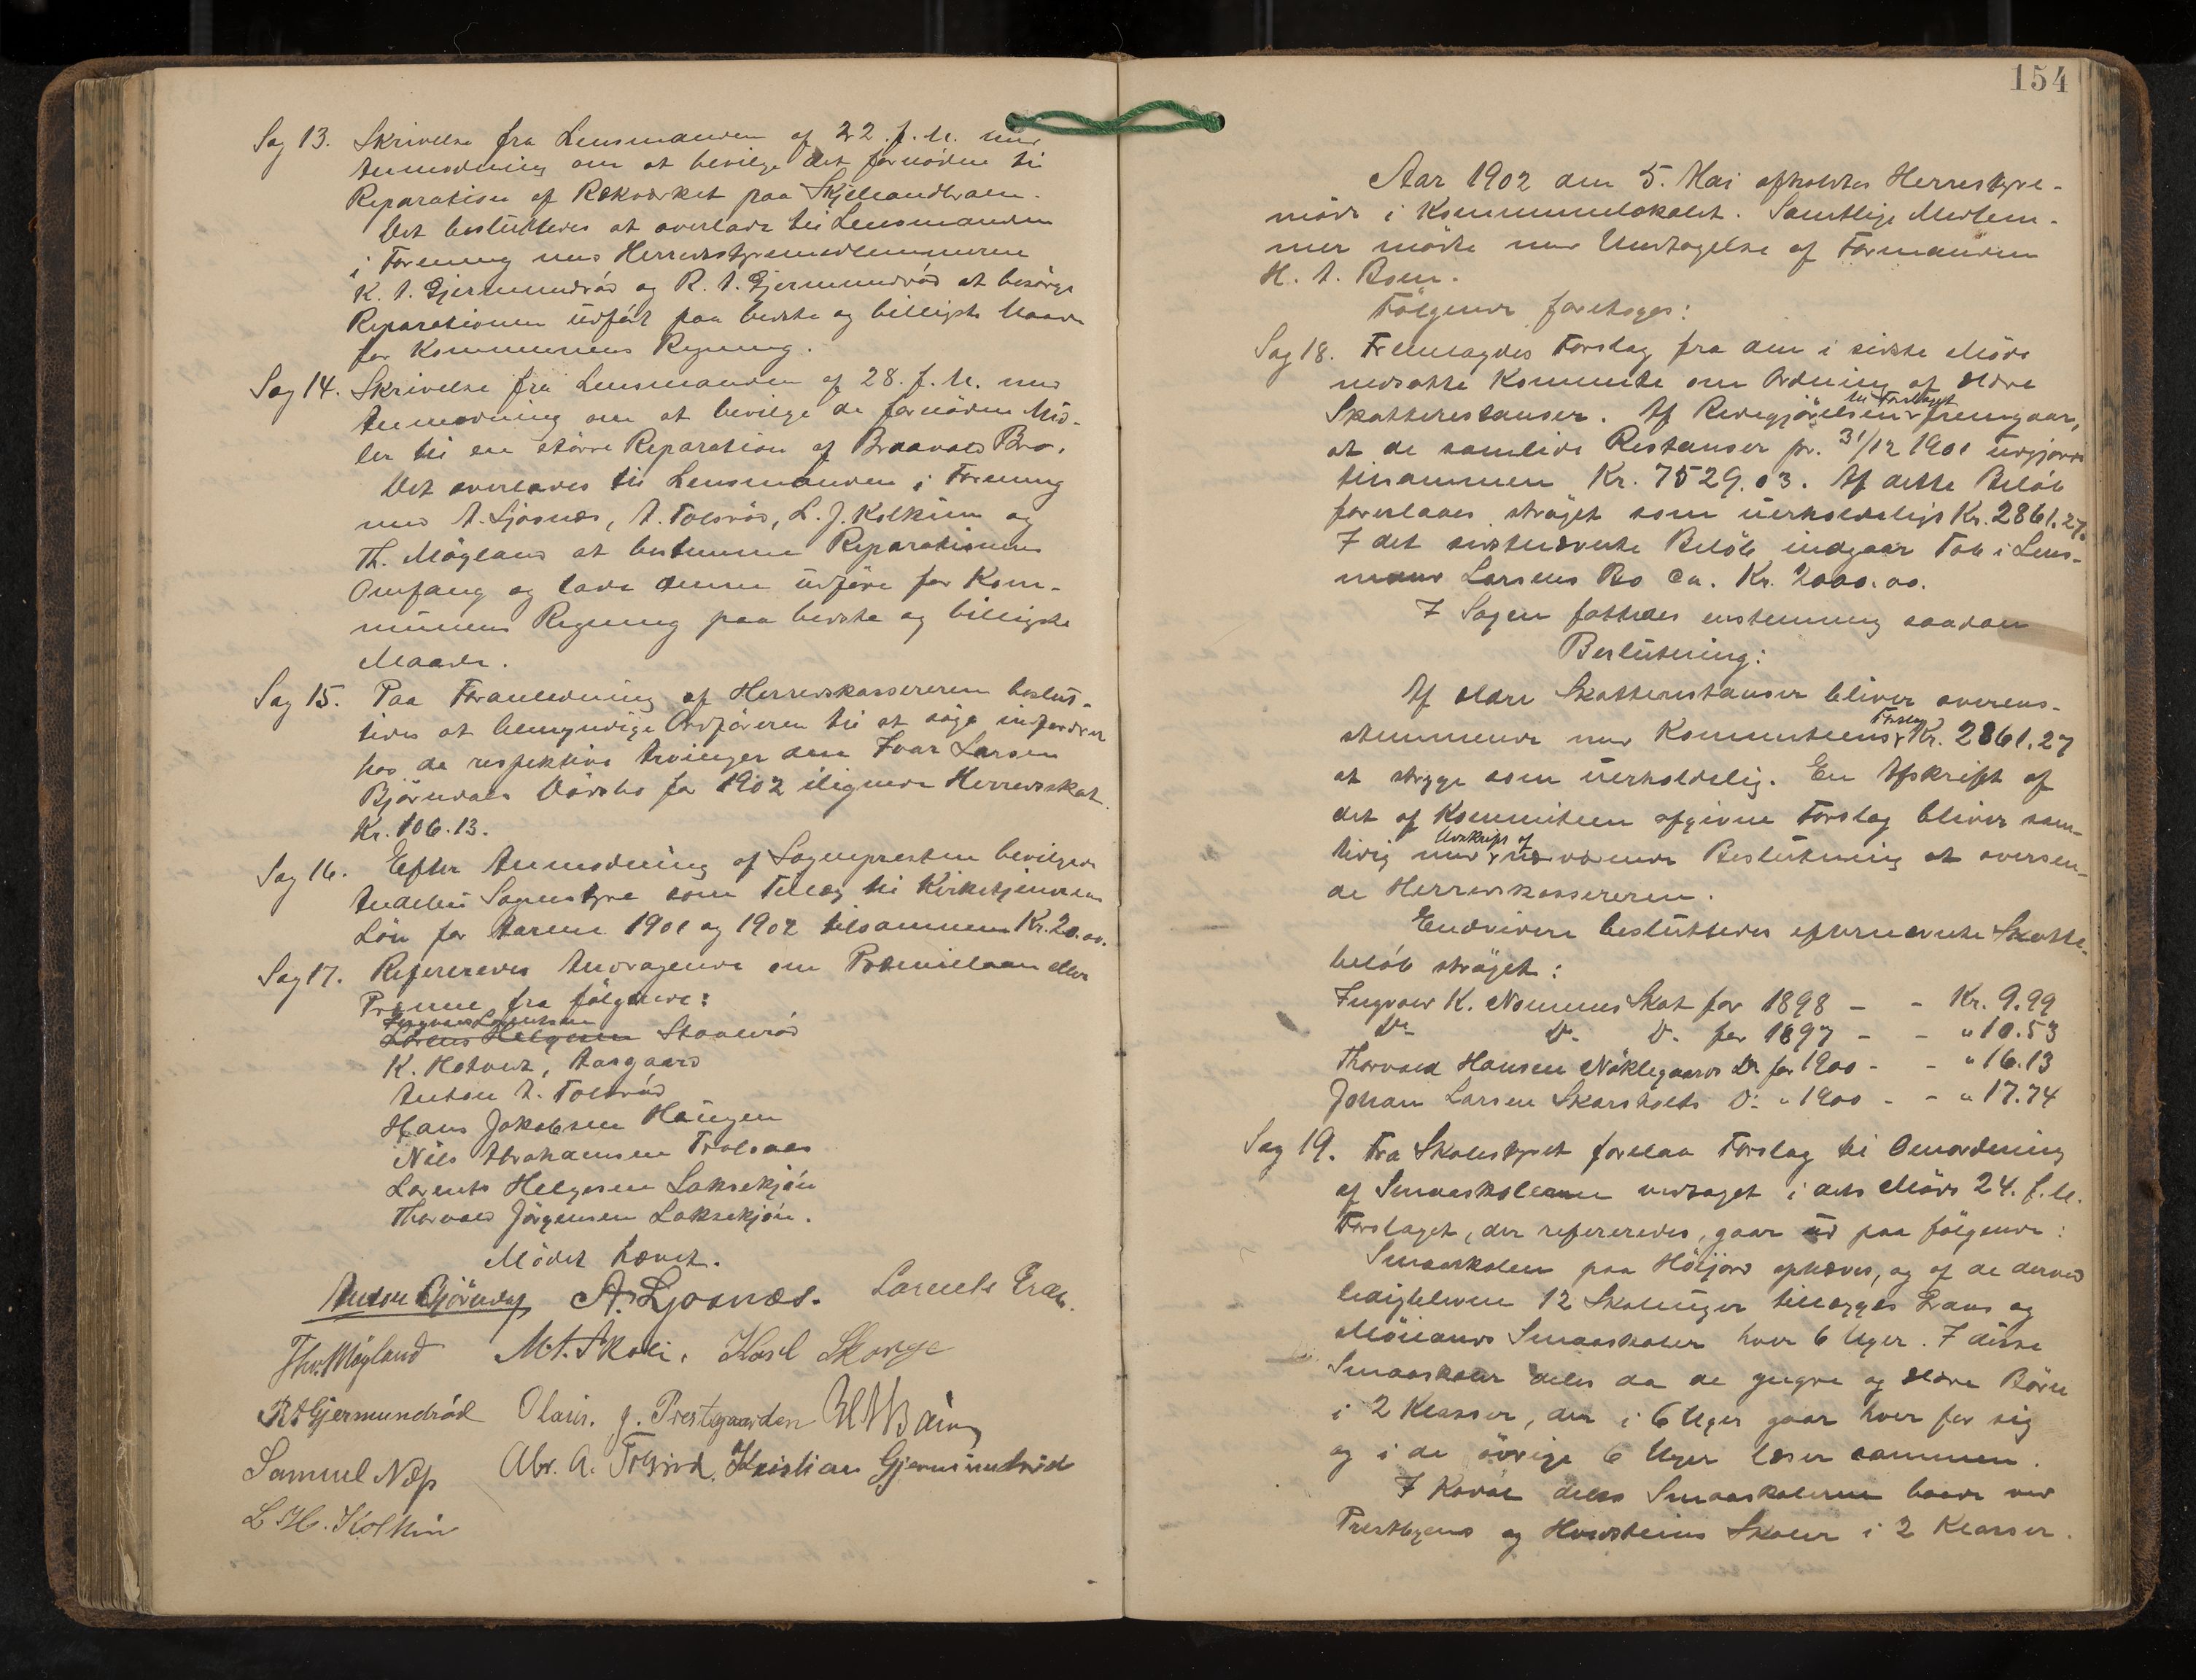 Sag 13. Skrivelse fra Lensmanden af 22. f. M. med
Anmodning om at bevilge det fornödne til
Reparation af Rekværket paa Skjellandbroen.
Det besluttedes at overlade til Lensmanden
i Forening med Herredsstyremedlemmerne
K. A. Gjermundröd og R. A. Gjermundröd at besörge
Reparationen udfört paa bedste og billigste Maade
for Kommunens Regning.
Sag 14. Skrivelse fra Lensmanden af 28. f. M. med
Anmodning om at bevilge de fornödne Mid-
ler til en större Reparation af Braavald Bro.
Det overlodes til Lensmanden i Forening
med A. Ljosnæs, A. Tolsröd, L. J. Kolkin og
Th. Möyland at bestemme Reparationens
Omfang og lade denne udföre for Kom-
munens Regning paa bedste og billigste
Maade.
Sag 15. Paa Foranledning af Herredskassereren beslut-
tedes at bemyndige Ordföreren til at söge indfordret
hos de respektive Arvinger den Ivar Larsen
Björndals Dödsbo for 1902 ilignede Herredsskat
Kr. 106.13.
Sag 16. Efter Anmodning af Sognepresten bevilgede
Andebu Sognestyre som Tillæg til Kirketjenerens
Lön for Aarene 1901 og 1902 tilsammen Kr. 20.00.
Sag 17. Refereredes Andragende om Præmielaan eller
Præmie fra fölgende:
Lorens Helgesen Staaleröd
K. Hotvedt, Aasgaard
Anton A. Tolsröd
Hans Jakobsen Haugen
Nils Abrahamsen Trolsaas
Lorents Helgesen Laksekjön
Thorvald Jörgensen Laksekjön.
Mödet hævet.
Anton Björndal A. Ljosnæs. Lorents
Thv. Möyland M. A. Skoli. Karl Skorge
R A Gjermundröd Olaus. J. Prestegaarden
Samuel Næs Abr. A. Tolsröd, Kristian Gjermundröd
L H. Kolkin
154
Aar 1902 den 5. Mai afholdtes Herredstyre-
möde i Kommunelokalet. Samtlige Medlem-
mer mödte med Undtagelse af Formanden
H. A. Boen.
Fölgende foretoges:
Sag 18. Fremlagdes Forslag fra den i sidste Möde
nedsatte Kommite om Ordning af ældre
Skatterestanser. Af Redegjörelsen til Forslaget fremgaar,
at de samlede Restanser pr. 31/12 1901 udgjorde
tilsammen Kr. 7529.03. Af dette Belöb
foreslaaes ströget som uerholdeligt Kr. 2861.27.
I det sidstnævnte Belöb indgaar Tab i Lens-
mand Larsens Bo ca. Kr. 2000.00.
I Sagen fattedes enstemmig saadan
Beslutning:
Af ældre Skatterestanser bliver overens-
stemmende med Kommiteens Forslag Kr. 2861.27
at stryge som uerholdelig. En Afskrift af
det af Kommiteen afgivne Forslag bliver sam-
tidig med Udskrift af nærværende Beslutning at oversen-
de Herredskassereren.
Endvidere besluttedes efternævnte Skatte-
belöb ströget:
Ingvald K. Nommes Skat for 1898 - - Kr. 9.99
Do Do Do for 1897 - - " 10.53
Thorvald Hansen Nöklegaard Do for 1900 - - " 16.13
Johan Larsen Skarsholts Do " 1900 - - " 17.74
Sag 19. Fra Skolestyret forelaa Forslag til Omordning
af Smaaskolerne vedtaget i dets Möde 24. f. M.
Forslaget, der refereredes, gaar ud paa fölgende:
Smaaskolen paa Höijord ophæves, og af de derved
ledigblevne 12 Skoleuger tillægges Gravs og
Möilands Smaaskoler hver 6 Uger. I disse
Smaaskoler deles da de yngre og ældre Börn
i 2 Klasser, der i 6 Uger gaar hver for sig
og i de övrige 6 Uger læser sammen.
I Kodal deles Smaaskolerne baade ved
Prestbyens og Hvidsteins Skoler i 2 Klasser.